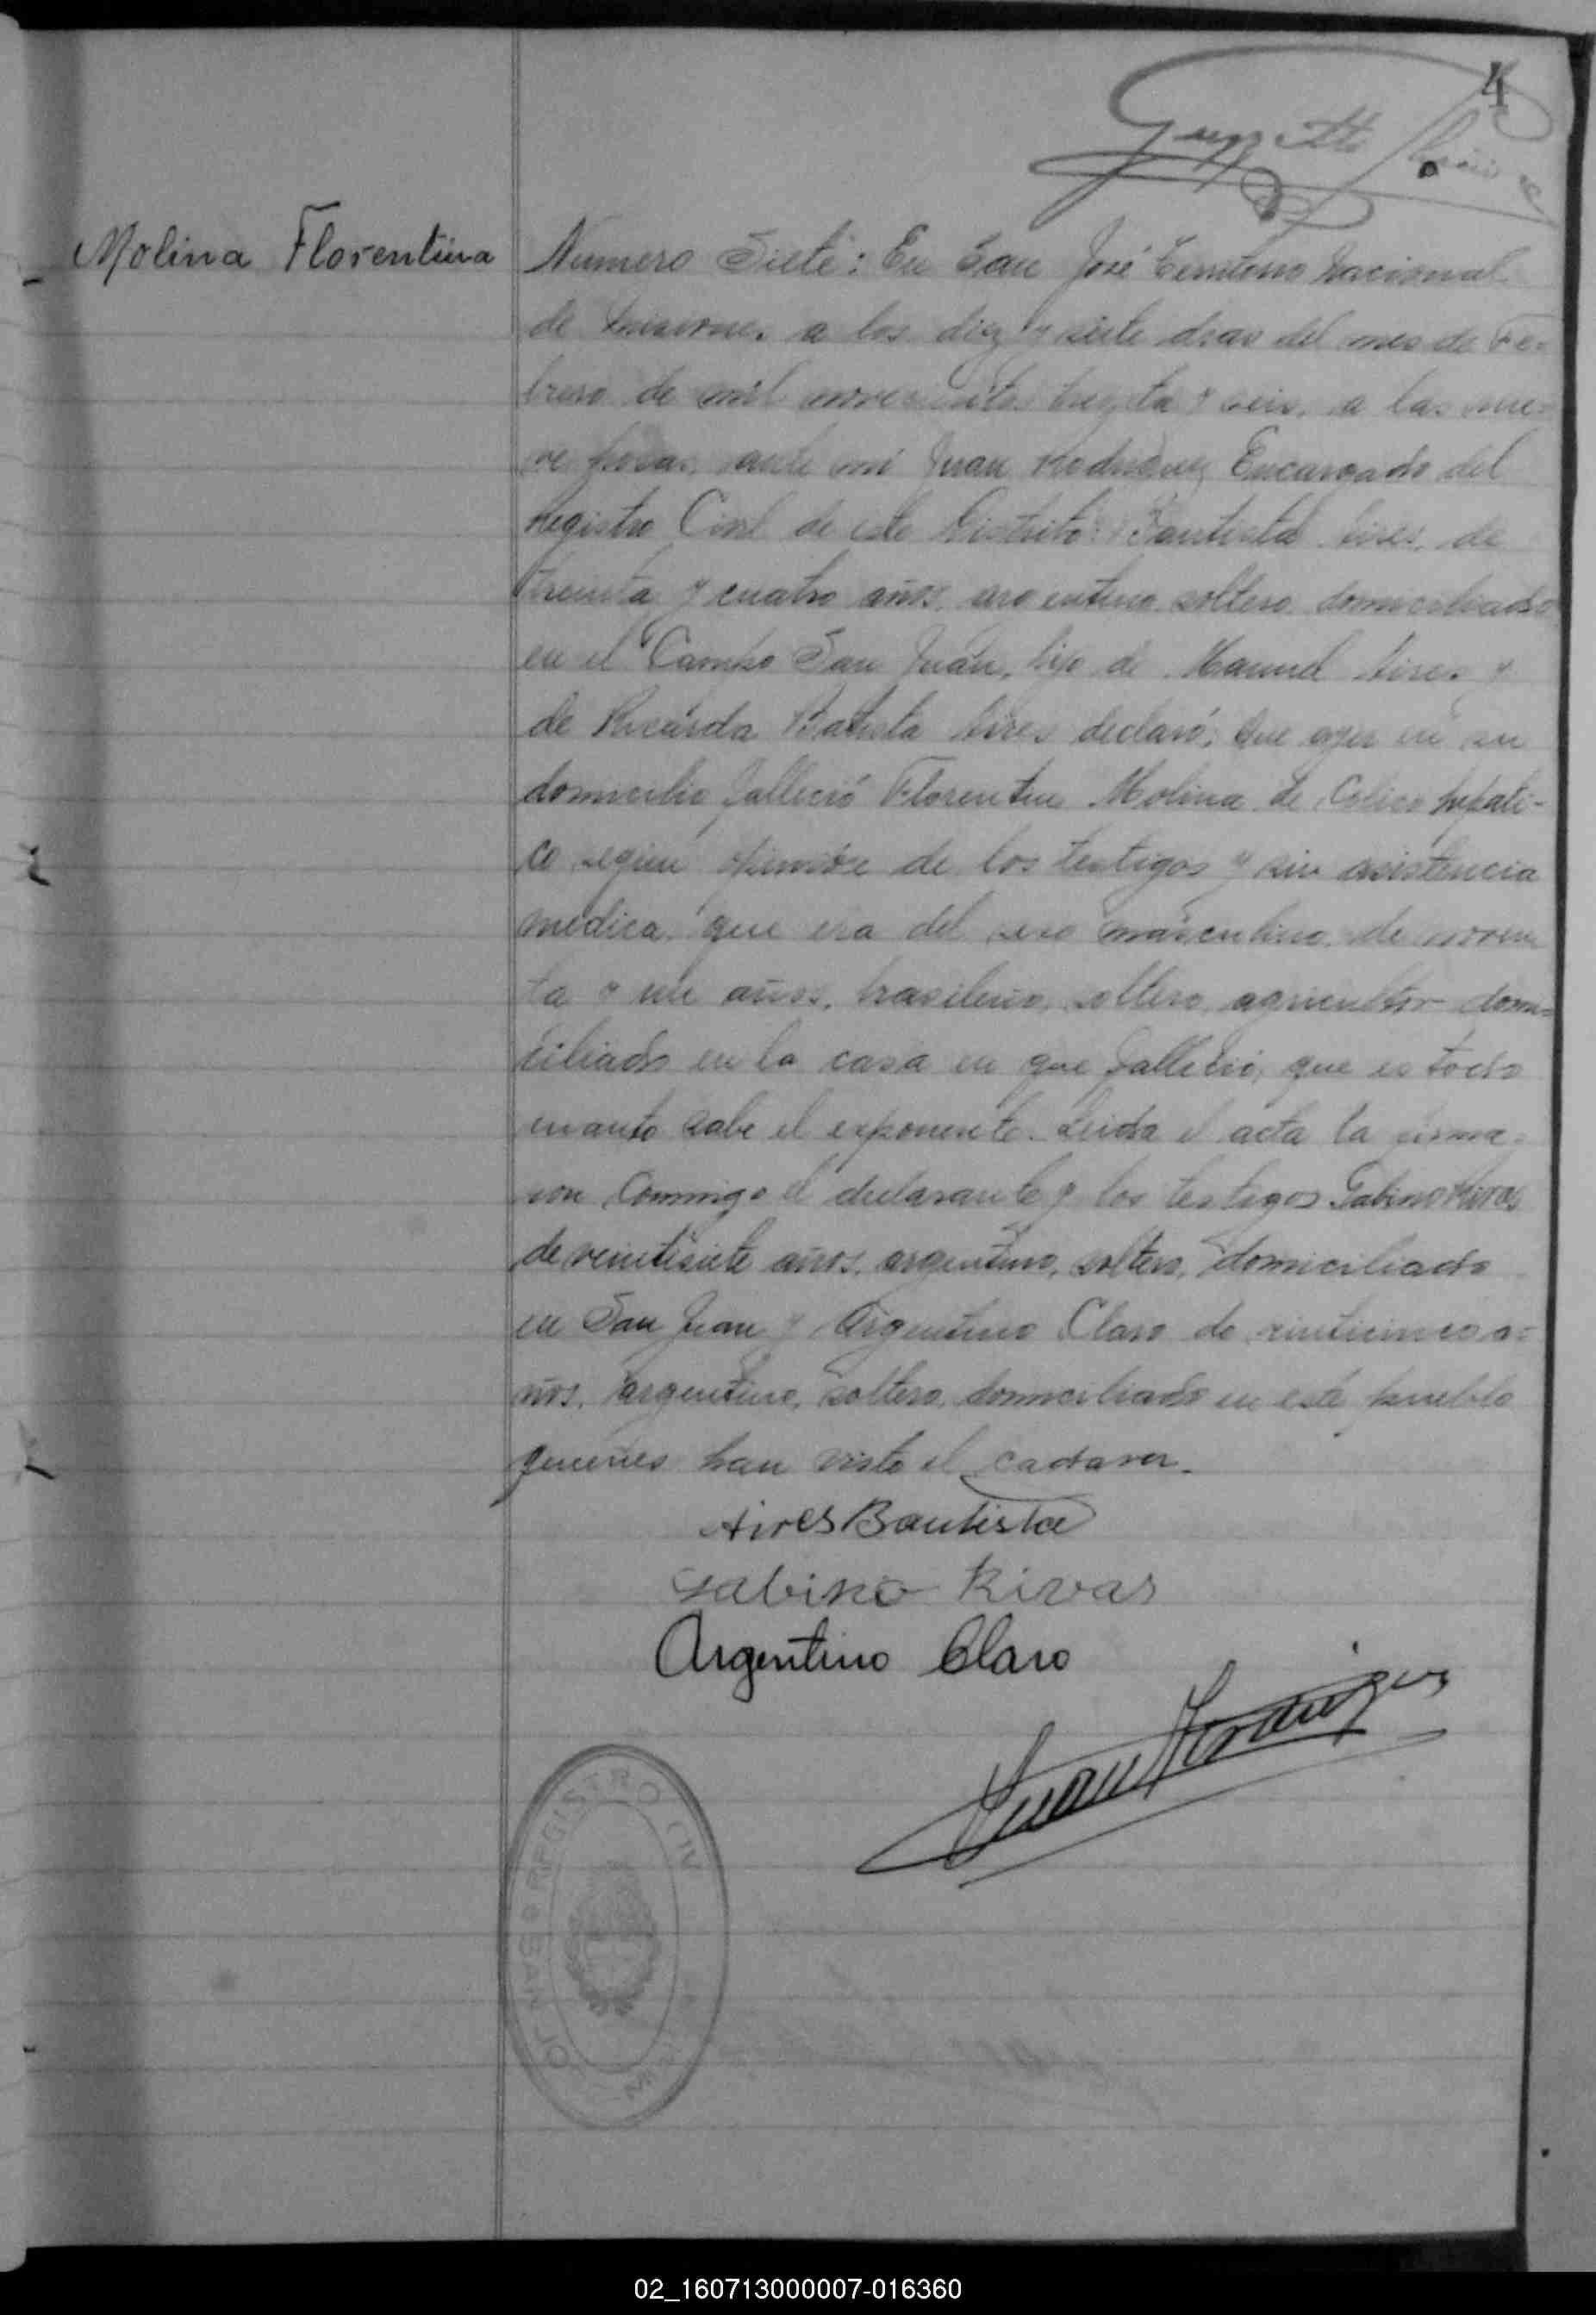 4
Molina Florentina
Numero Siete: En San José Territorio Nacional
de Misiones. a los diez y siete dias del mes de Fe=
brero de mil novecientos treinta y seis, a las nue=
ve horas, ante mi Juan Rodriguez Encargado del
Registro Civil de este Distrito: Bautista Aires, de
treinta y cuatro años, argentino soltero domiciliado
en el Campo San Juan, hijo de Manuel Aires y
de Ricarda Batista Aires declaró; Que ayer en su
domicilio falleció Florentin Molina de Colico hepati-
co segun opinión de los testigos y sin asistencia
medica, que era del sexo masculino, de noven
ta y un años, brasilerio, soltero, agricultor domi=
ciliado en la casa en que falleció, que es todo
cuanto sabe el exponente. Leida el acta la firma=
ron Conmigo el declarante y los testigos Gabino Rivas
de veintisiete años, argentino, soltero, domiciliado
en San Juan y Argentino Claro de vinticinco a=
ños, argentino, soltero, domiciliado en este pueblo
quienes han visto el cadaver.
Aires Bautista
Gabino Rivas
Argentino Claro
Juan Rodriguez
REGISTRO CIVIL
SAN JOSE
02_160713000007-016360